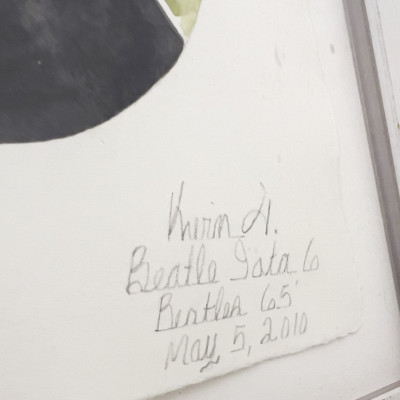 Kevin H.
Beatle Data 6
Beatles 65'
May 5, 2010